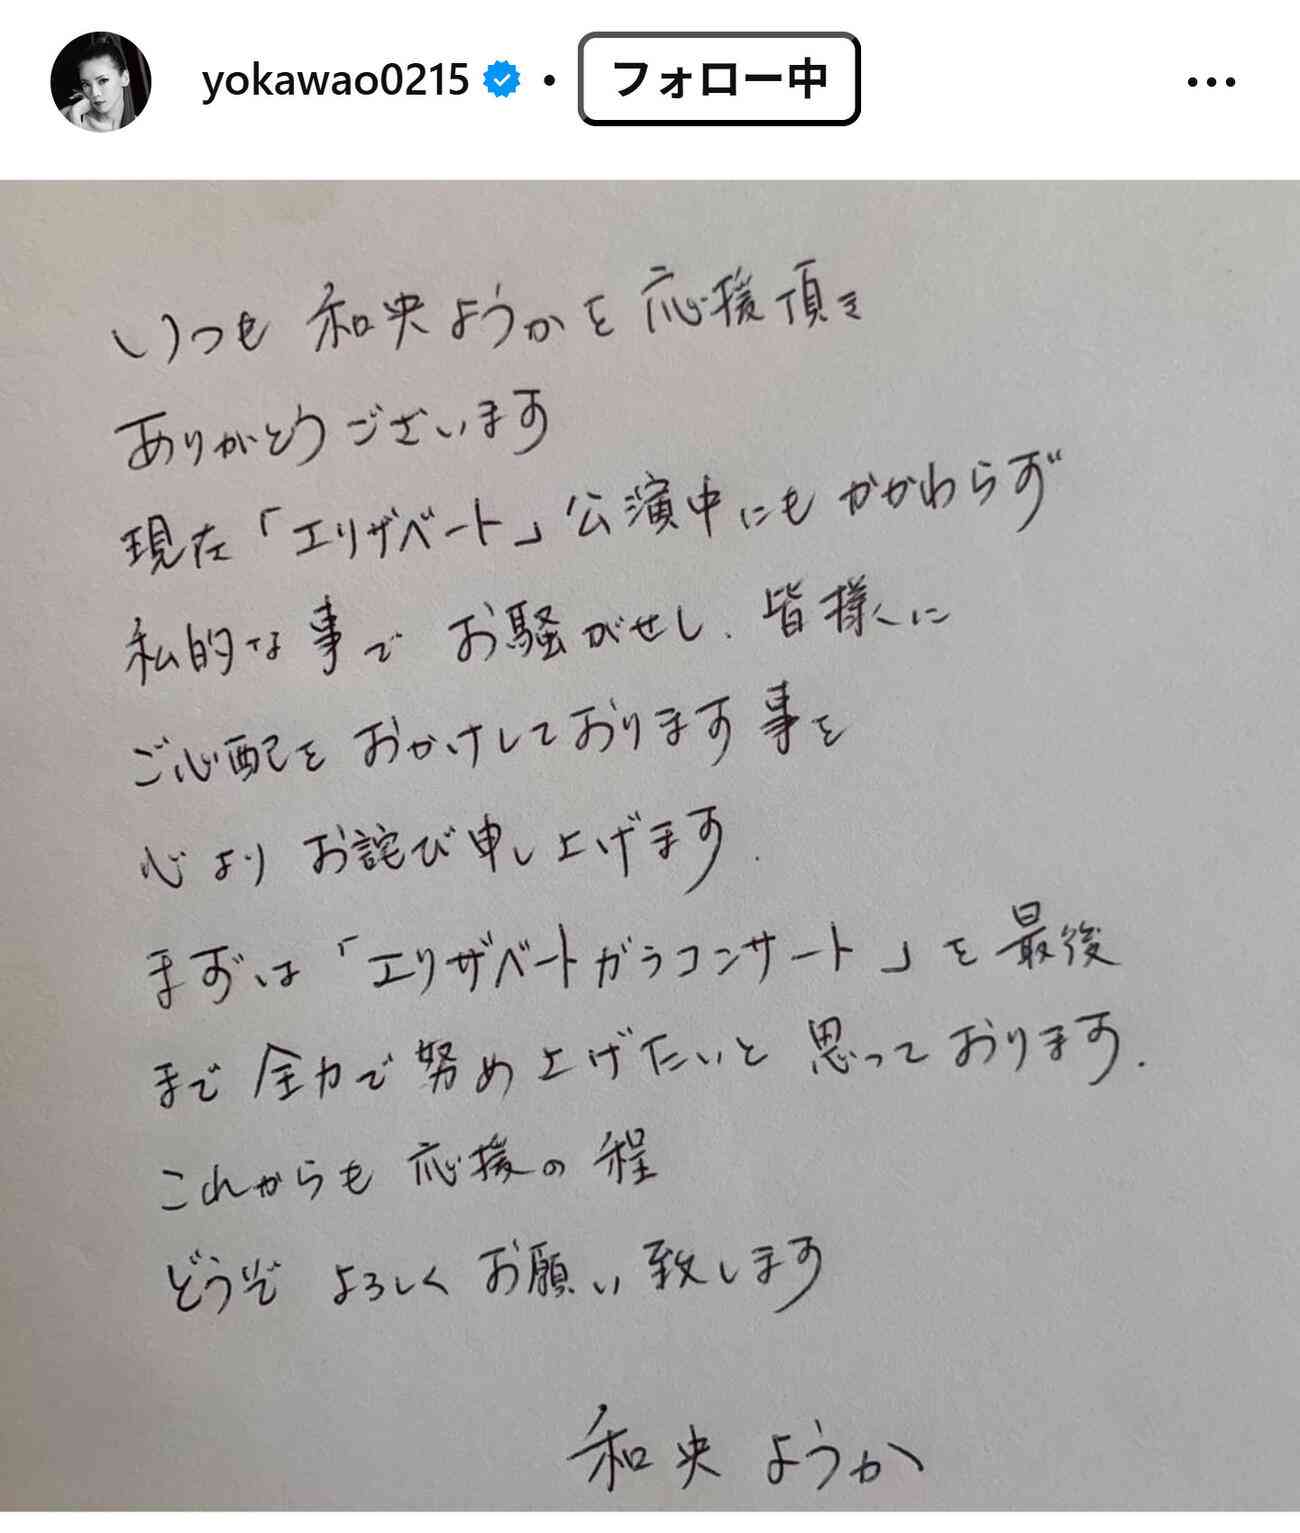 yokawao0215 • フォロー中 •••
いつも 和央ようかを応援頂き
ありがとうございます
現在「エリザベート」公演中にもかかわらず
私的な事で お騒がせし、皆様に
ご心配を おかけしております事を
心より お詫び申し上げます.
まずは「エリザベートガラコンサート」を最後
まで 全力で努め上げたいと思っております.
これからも 応援の程
どうぞ よろしくお願い致します
和央ようか